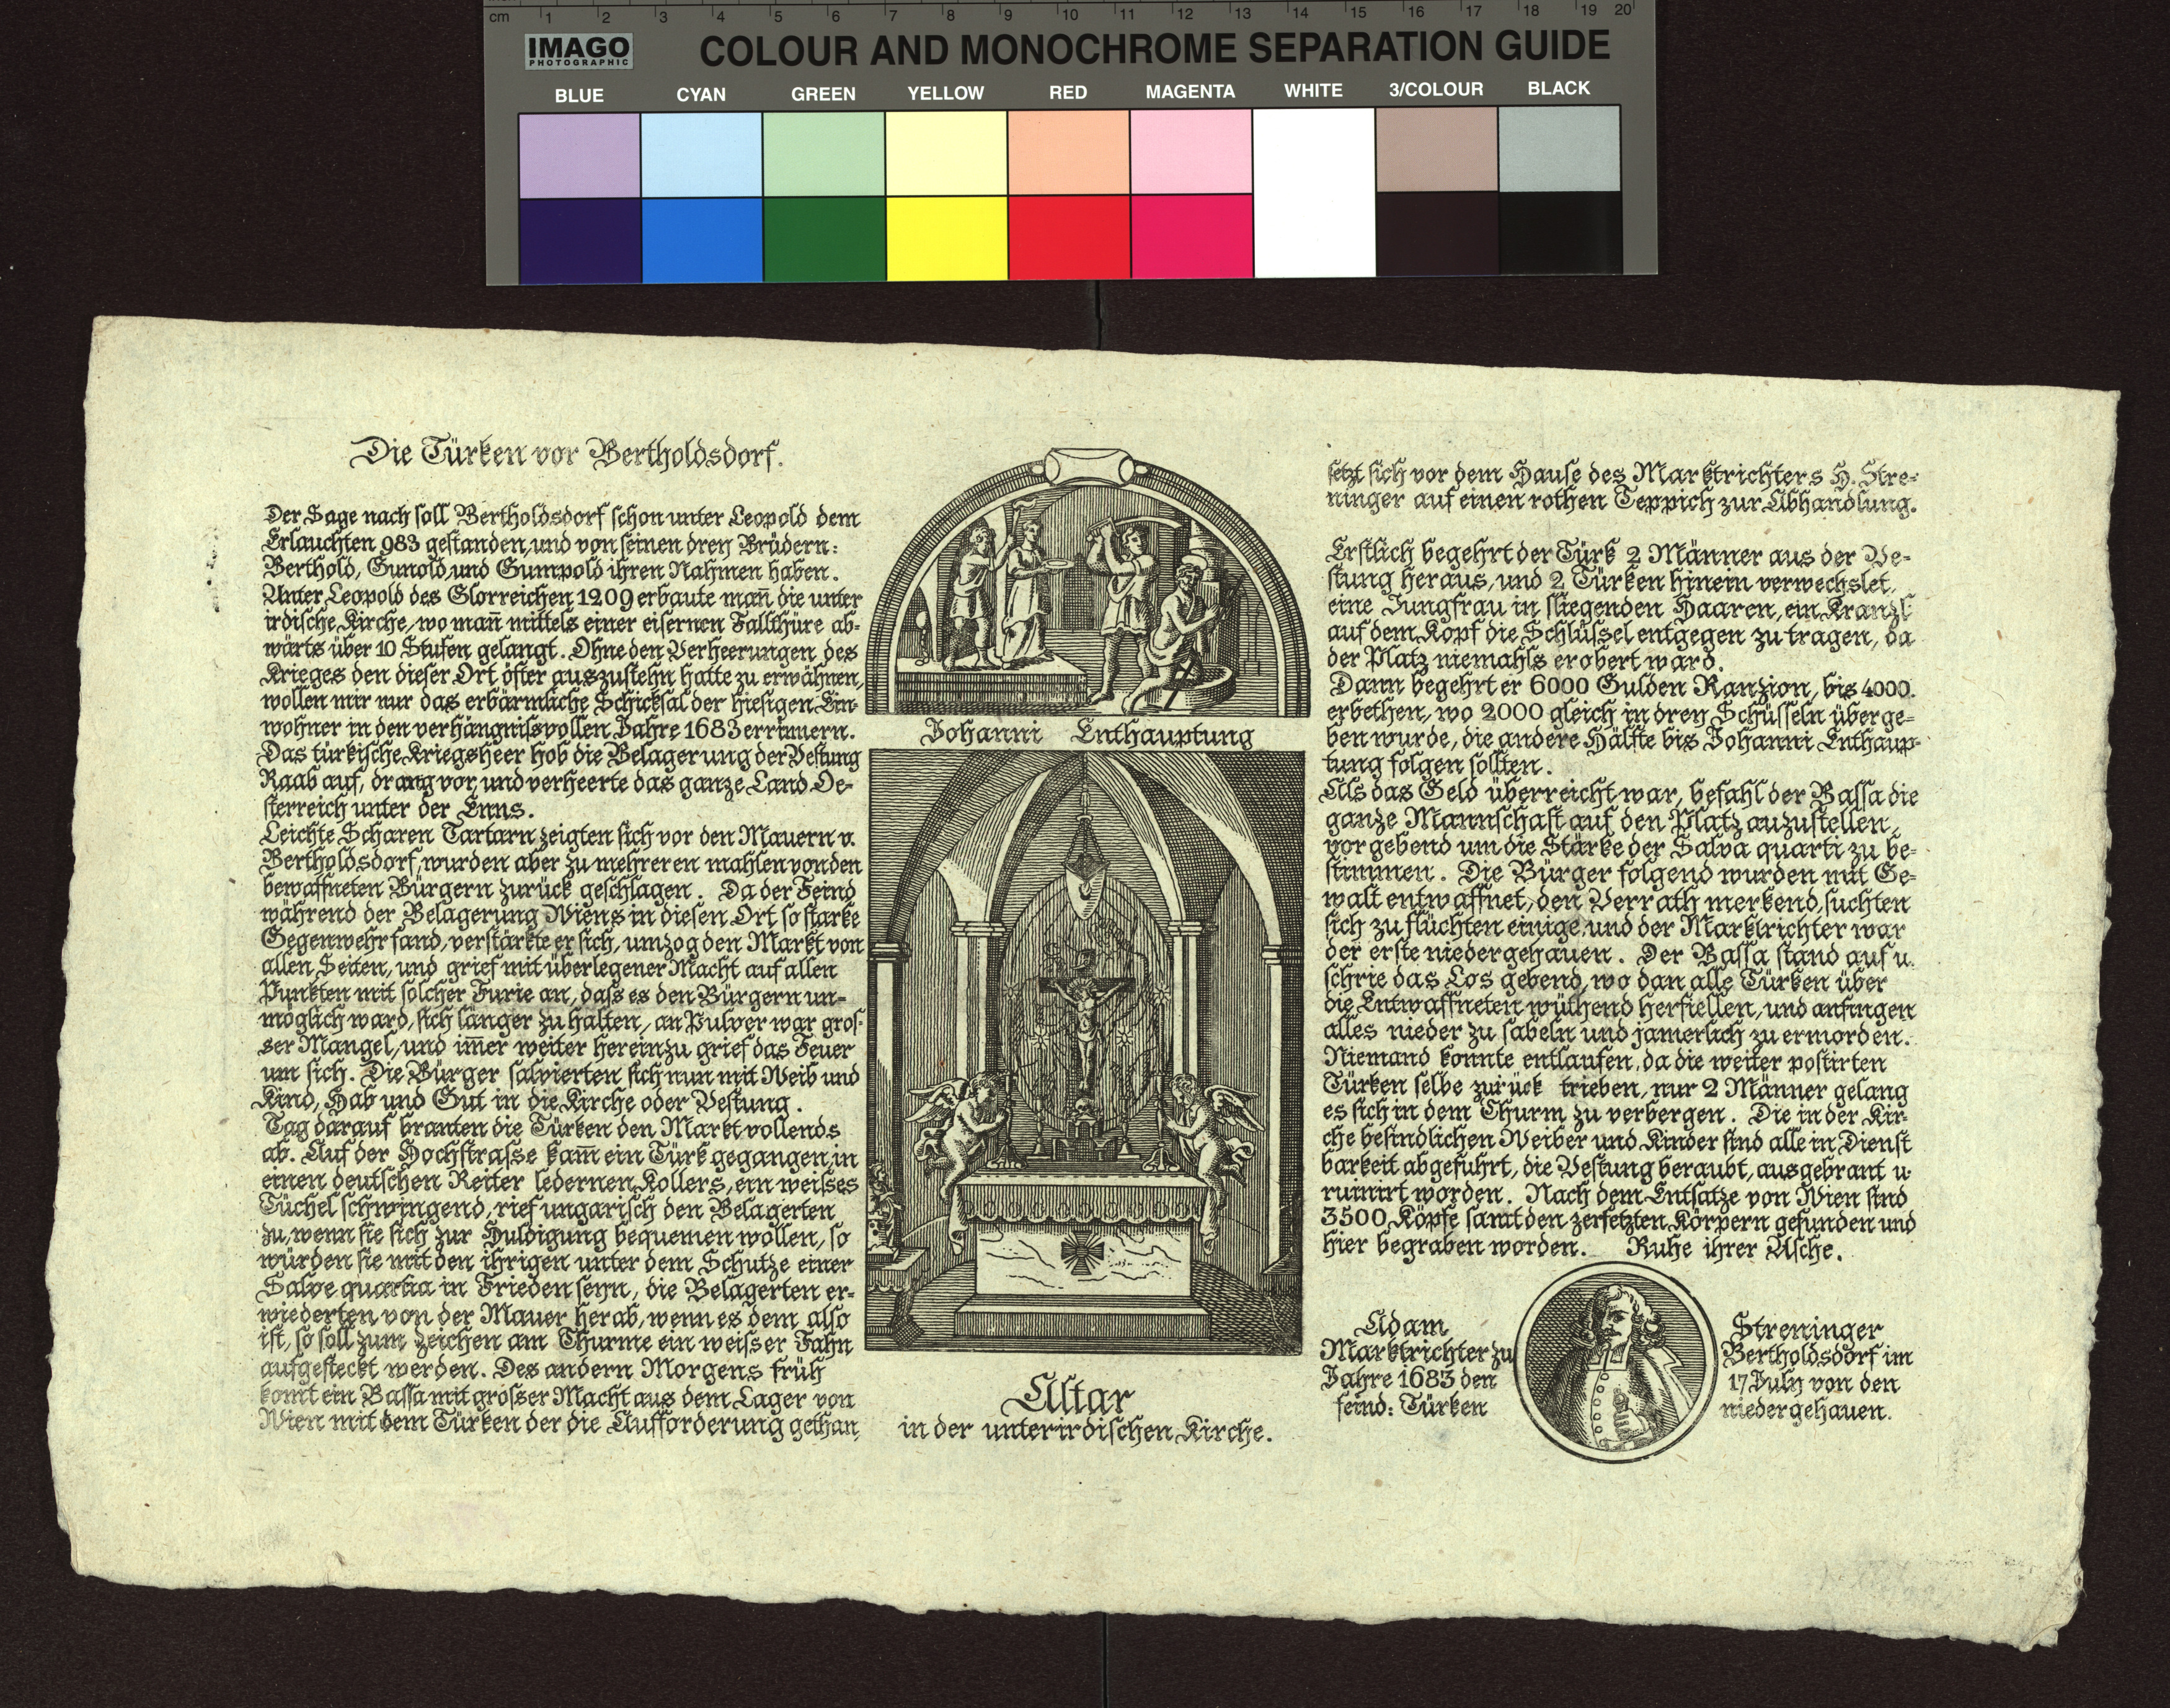 cm 1 2 3 4 5 6 7 8 9 10 11 12 13 14 15 16 17 18 19 20
IMAGO
PHOTOGRAPHIC
COLOUR AND MONOCHROME SEPARATION GUIDE
BLUE CYAN GREEN YELLOW RED MAGENTA WHITE 3/COLOUR BLACK
Die Türken vor Bertholdsdorf.
Der Sage nach soll Bertholdsdorf schon unter Leopold dem
Erlauchten 983 gestanden, und von seinen drey Brüdern:
Berthold, Gunold und Gumpold ihren Nahmen haben.
Unter Leopold des Glorreichen 1209 erbaute man̄ die unter
irdische Kirche, wo man̄ mittels einer eisernen Fallthüre ab-
wärts über 10 Stufen gelangt. Ohne den Verheerungen des
Krieges den dieser Ort öfter auszustehn hatte zu erwähnen,
wollen mir nur das erbärmliche Schicksal der hiesigen Ein-
wohner in den verhängnisvollen Jahre 1683 errinnern.
Das türkische Kriegsheer hob die Belagerung der Vestung
Raab auf, drang vor, und verheerte das ganze Land Oe-
sterreich unter der Enns.
Leichte Scharen Tartarn zeigten sich vor den Mauern v.
Bertholdsdorf, wurden aber zu mehreren mahlen von den
bewaffneten Bürgern zurück geschlagen. Da der Feind
während der Belagerung Wiens in diesen Ort so starke
Gegenwehr fand, verstärkte er sich, umzog den Markt von
allen Seiten, und grief mit überlegener Macht auf allen
Punkten mit solcher Furie an, dass es den Bürgern un-
möglich ward, sich länger zu halten, an Pulver war gros-
ser Mangel, und im̄er weiter hereinzu grief das Feuer
um sich. Die Bürger salvierten sich nun mit Weib und
Kind, Hab und Gut in die Kirche oder Vestung.
Tag darauf branten die Türken den Markt vollends
ab. Auf der Hochstrasse kam̄ ein Türk gegangen, in
einen deutschen Reiter ledernen Kollers, ein weisses
Tüchel schwingend, rief ungarisch den Belagerten
zu, wenn sie sich zur Huldigung bequemen wollen, so
würden sie mit den ihrigen unter dem Schutze einer
Salve quartia in Frieden seyn, die Belagerten er-
wiederten von der Mauer herab, wenn es dem also
ist, so soll zum Zeichen am Thurme ein weisser Fahn
aufgesteckt werden. Des andern Morgens früh
komt ein Bassa mit grosser Macht aus dem Lager von
Wien mit dem Türken der die Aufforderung gethan,
Johanni Enthauptung
Altar
in der unterirdischen Kirche.
setzt sich vor dem Hause des Marktrichters H. Stre-
ninger auf einen rothen Teppich zur Abhandlung.
Erstlich begehrt der Türk 2 Männer aus der Ve-
stung heraus, und 2 Türken hinein verwechslet,
eine Jungfrau in fliegenden Haaren, ein Kranzl
auf dem Kopf die Schlüssel entgegen zu tragen, da
der Platz niemahls erobert ward.
Dann begehrt er 6000 Gulden Ranzion, bis 4000.
erbethen, wo 2000 gleich in drey Schüsseln überge-
ben wurde, die andere Hälfte bis Johanni Enthaup-
tung folgen sollten.
Als das Geld überreicht war, befahl der Bassa die
ganze Mannschaft auf den Platz auzustellen,
vorgebend um die Stärke der Salva quarti zu be-
stimmen. Die Bürger folgend wurden mit Ge-
walt entwaffnet, den Verrath merkend, suchten
sich zu flüchten einige, und der Marktrichter war
der erste niedergehauen. Der Bassa stand auf u.
schrie das Los gebend, wo dan alle Türken über
die Entwaffneten wüthend herfiellen, und anfingen
alles nieder zu sabeln und jamerlich zu ermorden.
Niemand konnte entlaufen, da die weiter postirten
Türken selbe zurück trieben, nur 2 Männer gelang
es sich in dem Thurm zu verbergen. Die in der Kir-
che befindlichen Weiber und Kinder sind alle in Dienst
barkeit abgeführt, die Vestung beraubt, ausgebrant u.
ruinirt worden. Nach dem Entsatze von Wien sind
3500 Köpfe samt den zerfetzten Körpern gefunden und
hier begraben worden. Ruhe ihrer Asche.
Adam Streninger
Marktrichter zu Bertholdsdorf im
Jahre 1683 den 17 July von den
feind: Türken niedergehauen.